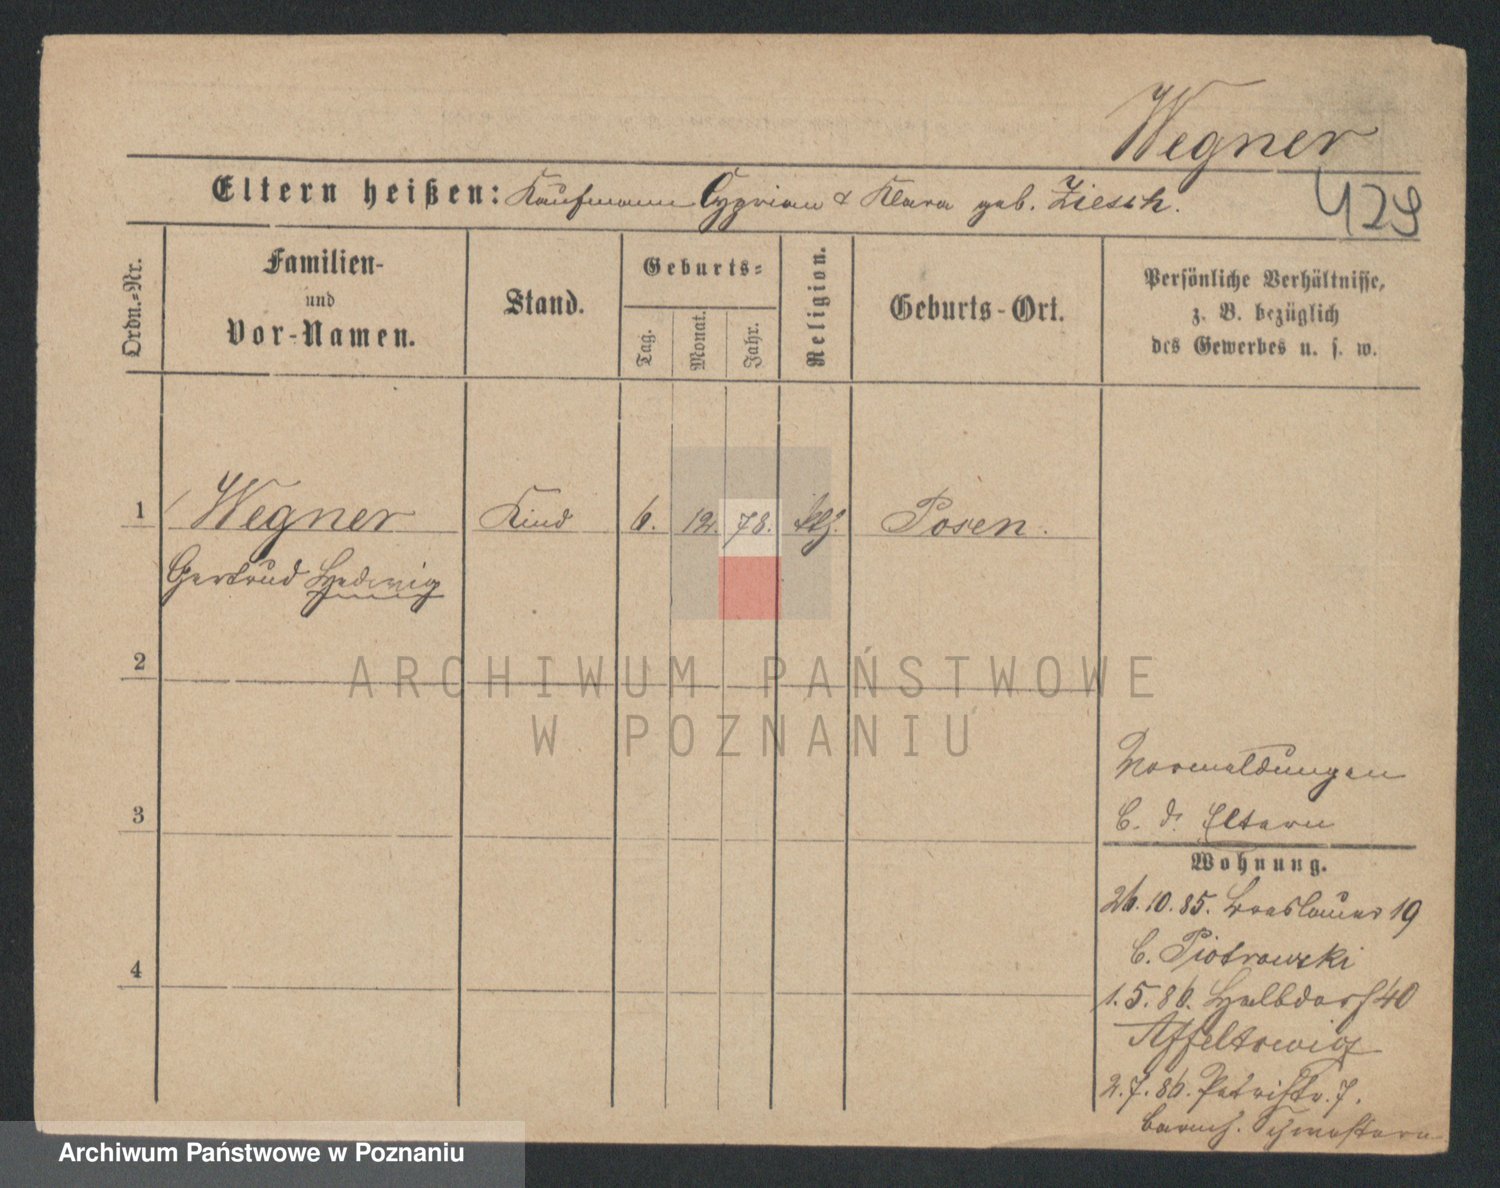 Wegner
Eltern heißen: Kaufmann Cyprian & Klara geb. Ziesch.
429
Ordn.-Nr.
Familien-
und
Vor-Namen.
Stand.
Geburts-
Tag.
Monat.
Jahr.
Religion.
Geburts-Ort.
Persönliche Verhältnisse,
z. B. bezüglich
des Gewerbes u. s. w.
1 Wegner Kind 6. 12. 78. Posen.
Gertrud Hedwig
2
ARCHIWUM PAŃSTWOWE
W POZNANIU
3
Vormeldungen
b. d. Eltern
Wohnung.
26.10.85. Breslauer 19
b. Piotrowski
4
1.5.86. Halbdorf 40
Affeltowicz
2.7.86. Petristr. 7.
barmh. Schwestern
Archiwum Państwowe w Poznaniu